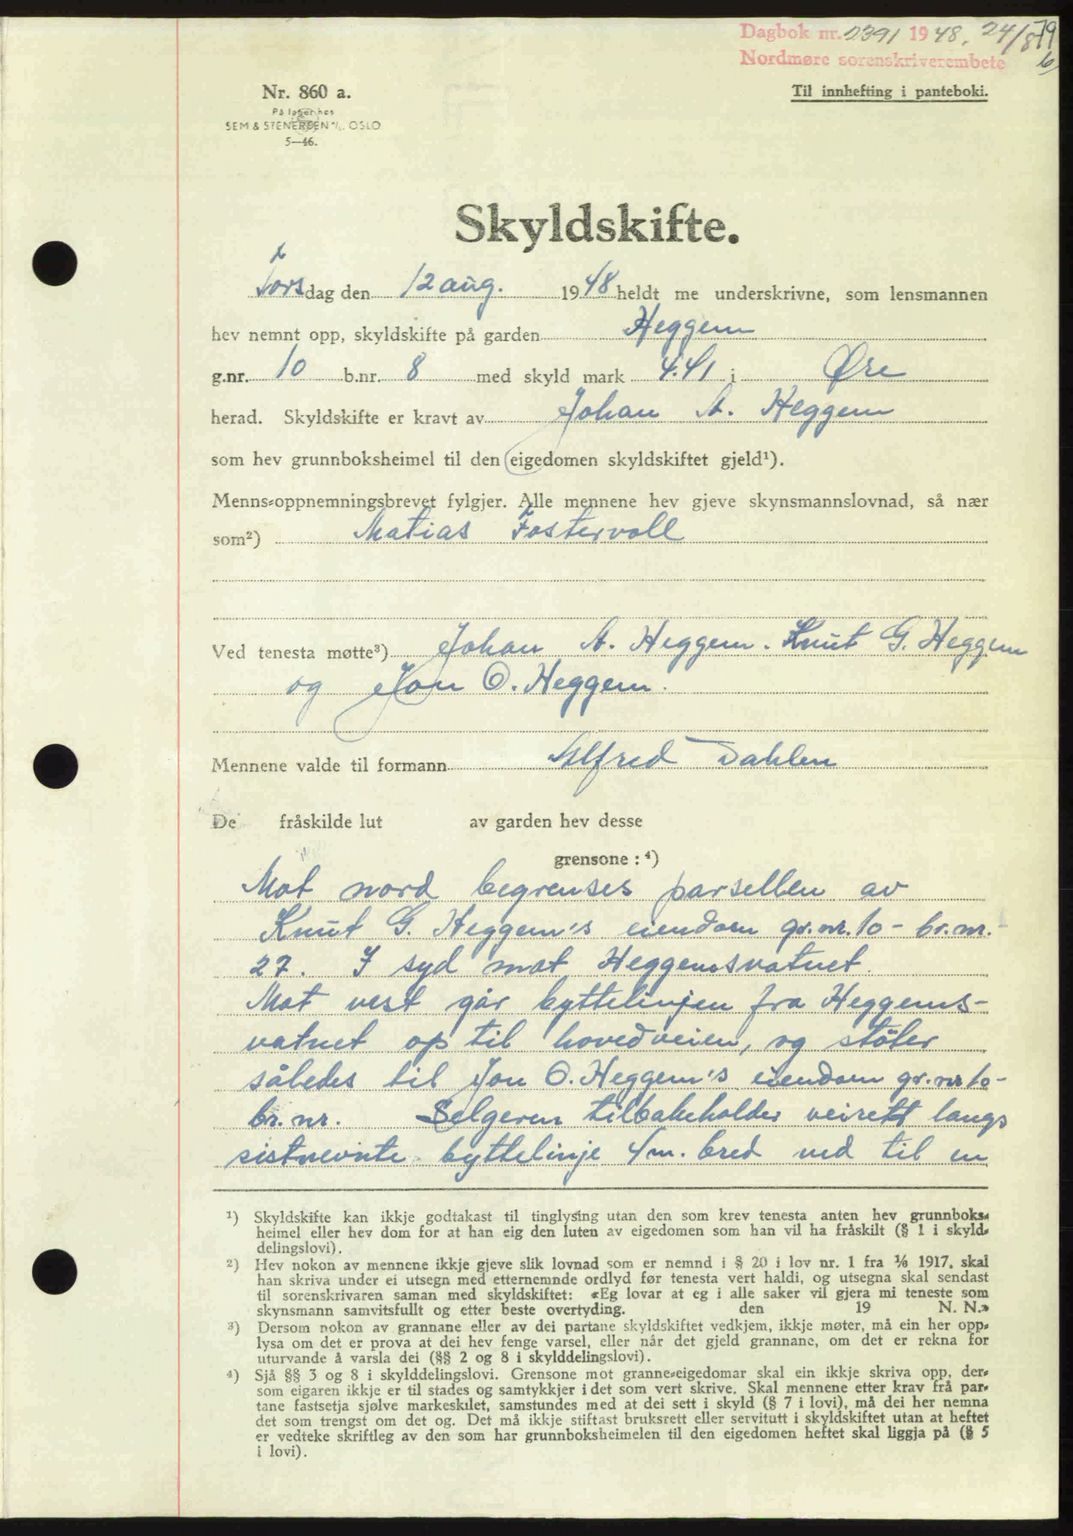 Dagbok nr. 2391 1948. 24/8 79
Nordmøre sorenskriverembete
Nr. 860 a.
Til innhefting i panteboki.
På lager hos
SEM & STENERSEN A/S. OSLO
5—46.
Skyldskifte.
Torsdag den 12 aug. 1948 heldt me underskrivne, som lensmannen
hev nemnt opp, skyldskifte på garden Heggem
g.nr. 10 b.nr. 8 med skyld mark 4.41 i Øre
herad. Skyldskifte er kravt av Johan A. Heggem
som hev grunnboksheimel til den eigedomen skyldskiftet gjeld¹).
Menns-oppnemningsbrevet fylgjer. Alle mennene hev gjeve skynsmannslovnad, så nær
som²) Matias Fostervoll
Ved tenesta møtte³) Johan A. Heggem. Knut G. Heggem
og Jon O. Heggem.
Mennene valde til formann Alfred Dahlen
De fråskilde lut av garden hev desse
grensone : ⁴)
Mot nord begrenses parsellen av
Knut G. Heggem's eiendom gr.nr. 10 - br.nr.
27. I syd mot Heggemsvatnet.
Mot vest går byttelinjen fra Heggems-
vatnet op til hovedveien, og støter
således til Jon O. Heggem's eiendom gr.nr 10-
br. nr. Selgeren tilbakeholder veirett langs
sistnevnte byttelinje 4 m. bred ved til en
¹) Skyldskifte kan ikkje godtakast til tinglysing utan den som krev tenesta anten hev grunnboks-
heimel eller hev dom for at han eig den luten av eigedomen som han vil ha fråskilt (§ 1 i skyld-
delingslovi).
²) Hev nokon av mennene ikkje gjeve slik lovnad som er nemnd i § 20 i lov nr. 1 fra 1/6 1917, skal
han skriva under ei utsegn med etternemnde ordlyd før tenesta vert haldi, og utsegna skal sendast
til sorenskrivaren saman med skyldskiftet: «Eg lovar at eg i alle saker vil gjera mi teneste som
skynsmann samvitsfullt og etter beste overtyding. den 19 N. N.»
³) Dersom nokon av grannane eller av dei partane skyldskiftet vedkjem, ikkje møter, må ein her opp-
lysa om det er prova at dei hev fenge varsel, eller når det gjeld grannane, om det er rekna for
uturvande å varsla dei (§§ 2 og 8 i skylddelingslovi).
⁴) Sjå §§ 3 og 8 i skylddelingslovi. Grensone mot granne-eigedomar skal ein ikkje skriva opp, der-
som eigaren ikkje er til stades og samtykkjer i det som vert skrive. Skal mennene etter krav frå par-
tane fastsetja sjølve markeskilet, samstundes med at dei sett i skyld (§ 7 i lovi), må dei her nemna
det som trengst om det og. Det må ikkje stiftast bruksrett eller servitutt i skyldskiftet utan at heftet
er vedteke skriftleg av den som har grunnboksheimelen til den eigedomen heftet skal liggja på (§ 5
i lovi).